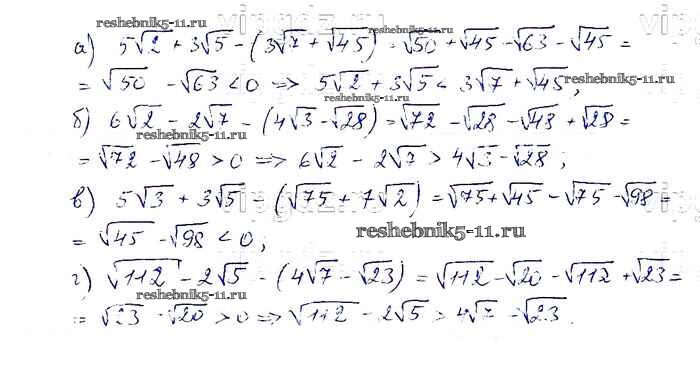 reshebnik5-11.ru
а) 5√2 + 3√5 - (3√7 + √45) = √50 + √45 - √63 - √45 =
reshebnik5-11.ru
= √50 - √63 < 0 => 5√2 + 3√5 < 3√7 + √45;
reshebnik5-11.ru
reshebnik5-11.ru
б) 6√2 - 2√7 - (4√3 - √28) = √72 - √28 - √48 + √28 =
reshebnik5-11.ru
= √72 - √48 > 0 => 6√2 - 2√7 > 4√3 - √28;
reshebnik5-11.ru
в) 5√3 + 3√5 - (√75 + 7√2) = √75 + √45 - √75 - √98 =
= √45 - √98 < 0;
reshebnik5-11.ru
г) √112 - 2√5 - (4√7 - √23) = √112 - √20 - √112 + √23 =
reshebnik5-11.ru
= √23 - √20 > 0 => √112 - 2√5 > 4√7 - √23.